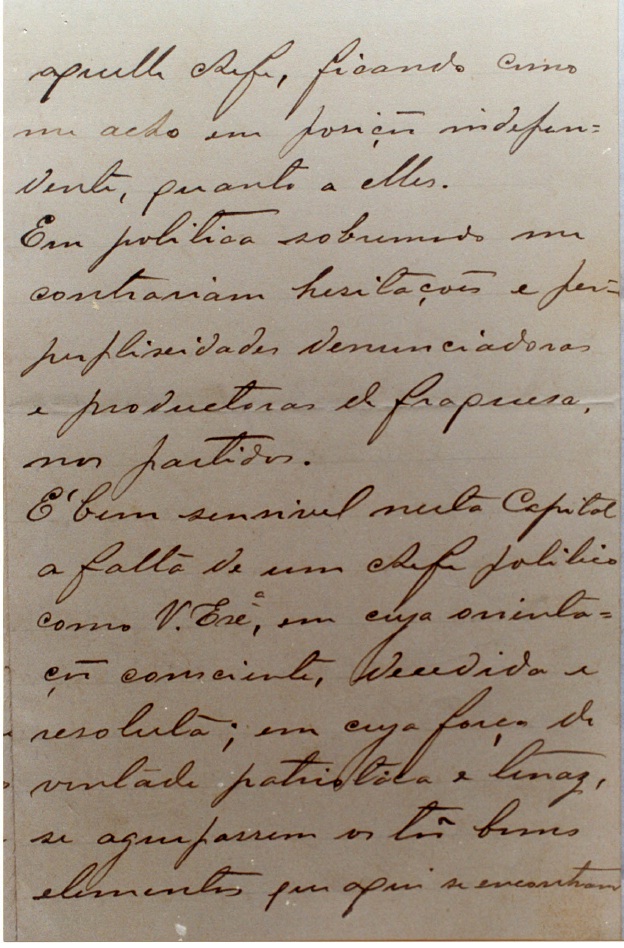 aquelle chefe, ficando como
me acho em posição indepen=
dente, quanto a elles.
Em politica sobremodo me
contrariam hesitações e per=
perplixeidades denunciadoras
e productoras de fraquesa,
nos partidos.
É bem sensivel nesta Capital
a falta de um chefe politico
como V. Exª, em cuja orienta=
ção consciente, decedida e
resoluta; em cuja força de
vontade patriotica e tenaz,
se agrupassem os tão bons
elementos que aqui se encontram